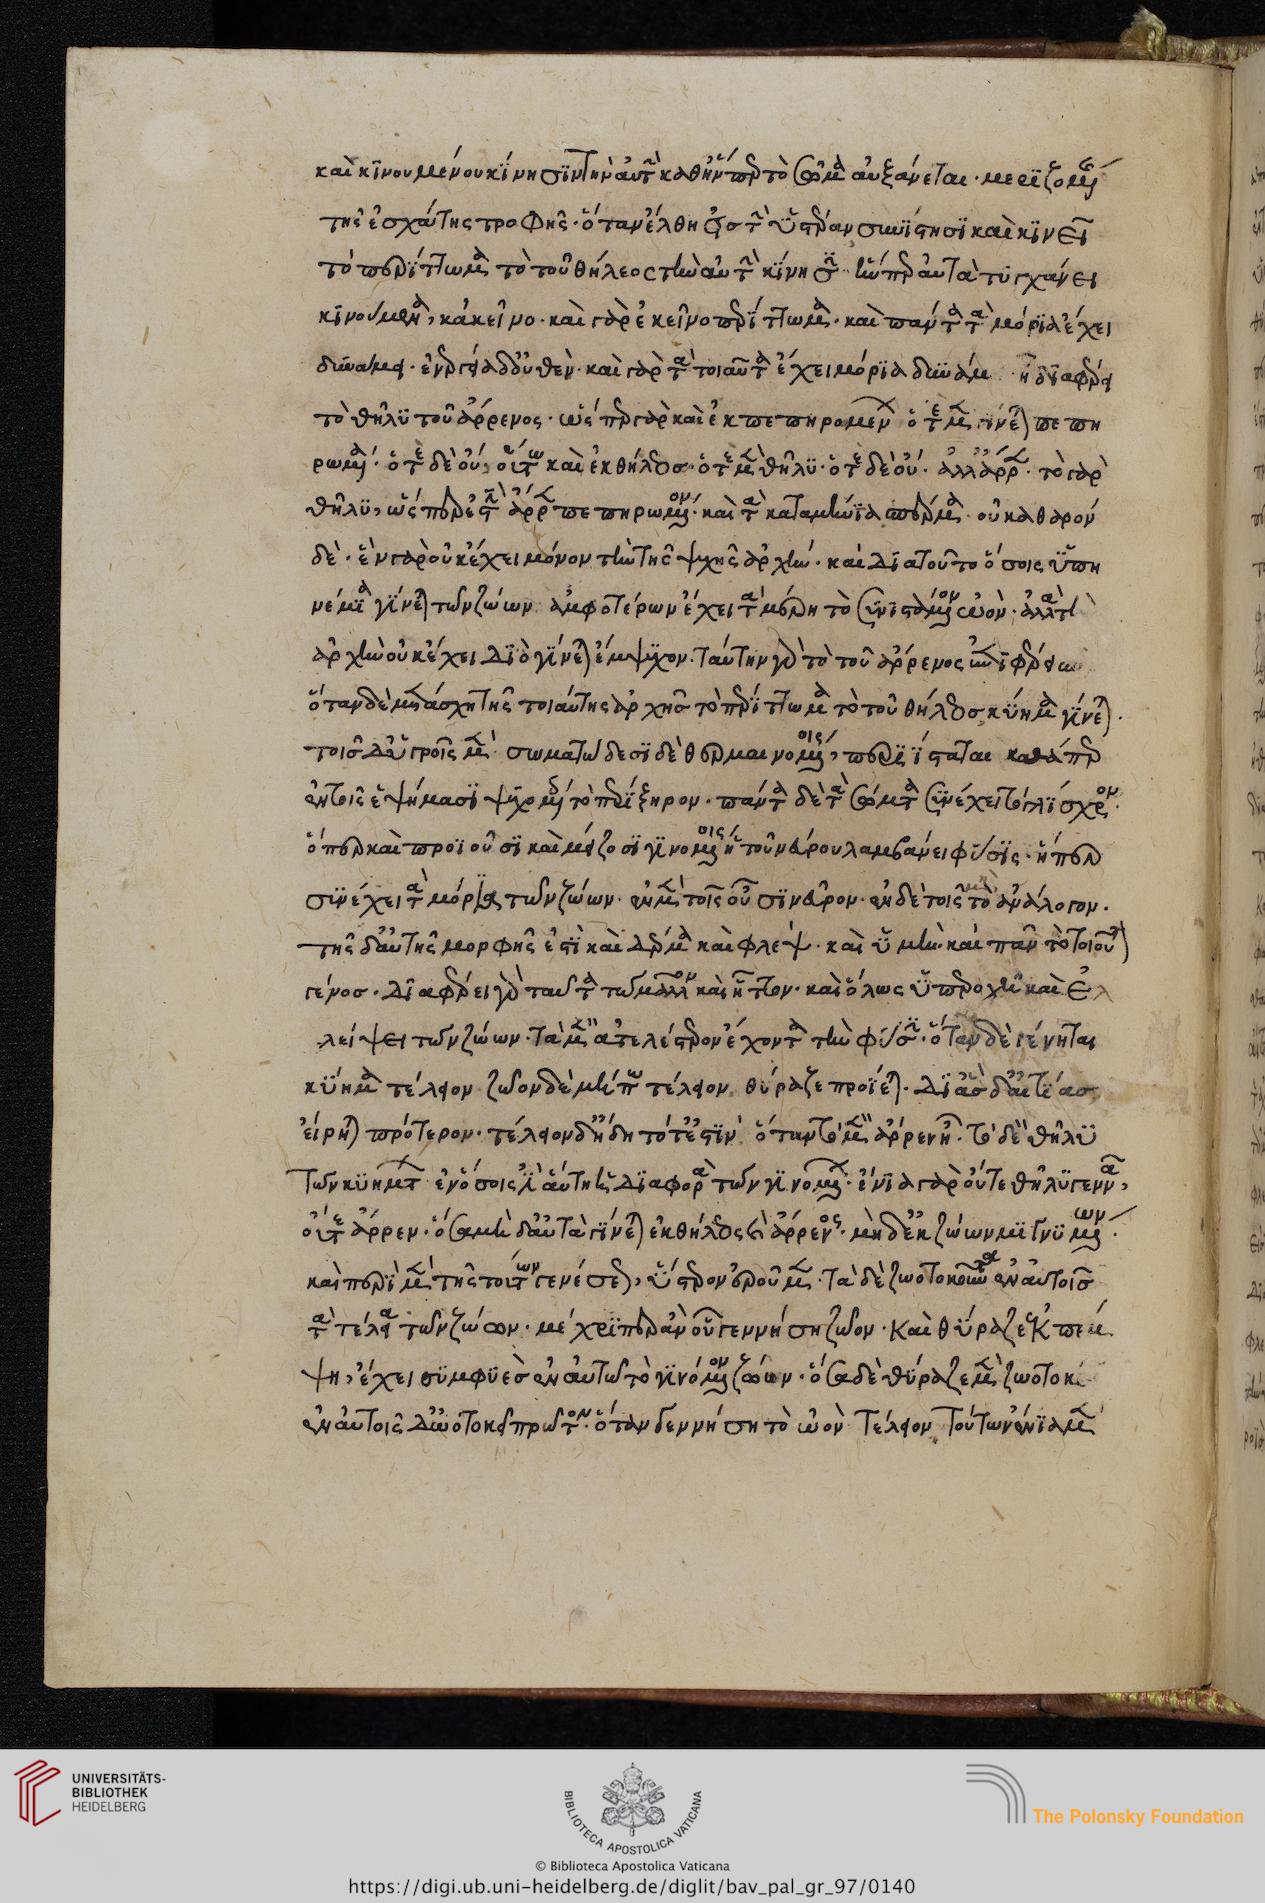 καὶ κινουμένου κίνησιν τὴν αὐτὴν καθ' ἥνπερ τὸ σῶμα αὐξάνεται· μεριζομένης
τῆς ἐσχάτης τροφῆς· ὅταν ἔλθη εἰς τὴν ὑστέραν συνίστησι καὶ κινεῖ
τὸ περίττωμα τὸ τοῦ θήλεος τὴν αὐτὴν κίνησιν ἥνπερ αὐτὰ τυγχάνει
κινούμενα, κἀκεῖνο· καὶ γὰρ ἐκεῖνο περίττωμα· καὶ πάντα τὰ μόρια ἔχει
δυνάμει· ἐνεργεία δ' οὐθέν· καὶ γὰρ τὰ τοιαῦτα ἔχει μόρια δυνάμει ἧ διαφέρει
τὸ θῆλυ τοῦ ἄρρενος· ὥσπερ γὰρ καὶ ἐκ πεπηρομένων ὁτὲ μὲν γίνεται πεπη
ρωμένα· ὁτὲ δὲ οὔ, οὕτω καὶ ἐκ θήλεος· ὁτὲ μὲν θῆλυ· ὁτὲ δὲ οὔ· ἀλλ' ἄρρεν· τὸ γὰρ
θῆλυ, ὥσπερ ἐστὶν ἄρρεν πεπηρωμένον· καὶ τὰ καταμήνια σπέρμα· οὐ καθαρόν
δέ· ἓν γὰρ οὐκ ἔχει μόνον τὴν τῆς ψυχῆς ἀρχήν· καὶ διὰ τοῦτο ὅσοις ὑπη
νέμια γίνεται τῶν ζώων ἀμφοτέρων ἔχει τὰ μέρη τὸ συνιστάμενον ὠόν· ἀλλὰ τὴν
ἀρχὴν οὐκ ἔχει διὸ γίνεται ἔμψυχον· ταύτην γὰρ τὸ τοῦ ἄρρενος ἐπιφέρει
ὅταν δὲ μετάσχη τῆς τοιαύτης ἀρχῆς τὸ περίττωμα τὸ τοῦ θήλεος κύημα γίνεται·
τοῖς δ' ὑγροῖς μὲν σωματώδεσι δὲ θερμαινομένοις, περιίσταται καθάπερ
ἐν τοῖς ἑψήμασι ψυχομένοις τὸ περίξηρον· πάντα δὲ τὰ σώματα συνέχει τὸ γλίσχρον·
ὅπερ καὶ προϊοῦσι καὶ μείζοσι γινομένοις ἡ τοῦ νεύρου λαμβάνει φύσις· ἥπερ
συνέχει τὰ μόρια τῶν ζώων· ἐν μὲν τοῖς οὖσιν νεῦρον· ἐν δὲ τοῖς τὸ ἀνάλογον·
τῆς δ' αὐτῆς μορφῆς ἐστὶ καὶ δέρμα καὶ φλέψ· καὶ ὑμὴν καὶ πᾶν τὸ τοιοῦτον
γένος· διαφέρει γὰρ ταῦτα τῶ μᾶλλον καὶ ἧττον· καὶ ὅλως ὑπεροχῆ καὶ ἐλ
λείψει τῶν ζώων· τὰ μὲν ἀτελέστερον ἔχοντα τὴν φύσιν· ὅταν δὲ γένηται
κύημα τέλειον ζῶον δὲ μήπω τέλειον θύραζε προΐεται· δι' ἃς δ' αἰτίας
εἴρηται πρότερον· τέλειον δ' ἤδη τότ' ἐστίν ὅταν τὸ μὲν ἄρρεν ἦ· τὸ δὲ θῆλυ
τῶν κυημάτων ἐν ὅσοις ἐστὶν αὕτη ἡ διαφορὰ τῶν γινομένων· ἔνια γὰρ οὔτε θῆλυ γεννᾶ,
οὔτε ἄρρεν· ὅσα μὴ δ' αὐτὰ γίνεται ἐκ θήλεος καὶ ἄρρενος· μὴδ' ἐκ ζώων μιγνυμένων·
καὶ περὶ μὲν τῆς τούτων γενέσεως, ὕστερον ἐροῦμεν· τὰ δὲ ζωοτοκοῦντα ἐν αὑτοῖς
τὰ τέλεια τῶν ζώων· μέχριπερ ἂν οὗ γεννήση ζῶον· καὶ θύραζε ἐκπέμ
ψη, ἔχει συμφυὲς ἐν αὑτῶ τὸ γινόμενον ζῶον· ὅσα δὲ θύραζε μὲν ζωοτοκεῖ
ἐν αὑτοῖς δ' ὠοτοκεῖ πρῶτον· ὅταν γεννήση τὸ ὠὸν τέλειον τούτων ἔνια μὲν
UNIVERSITÄTS-
BIBLIOTHEK
HEIDELBERG
BIBLIOTECA APOSTOLICA VATICANA
The Polonsky Foundation
© Biblioteca Apostolica Vaticana
https://digi.ub.uni-heidelberg.de/diglit/bav_pal_gr_97/0140